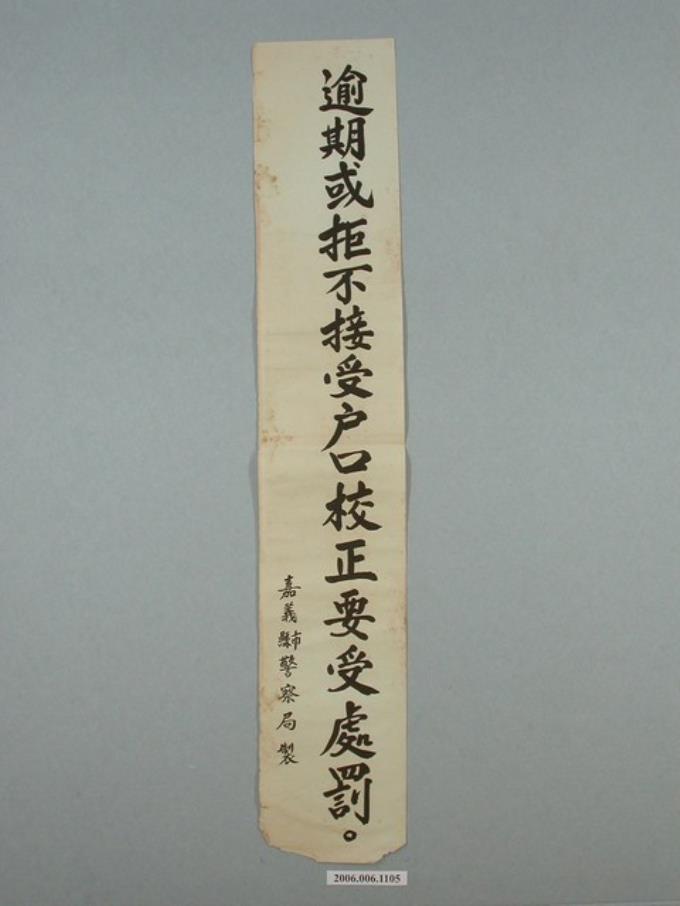 逾期或拒不接受户口校正要受處罰。
嘉義縣市警察局製
2006.006.1105